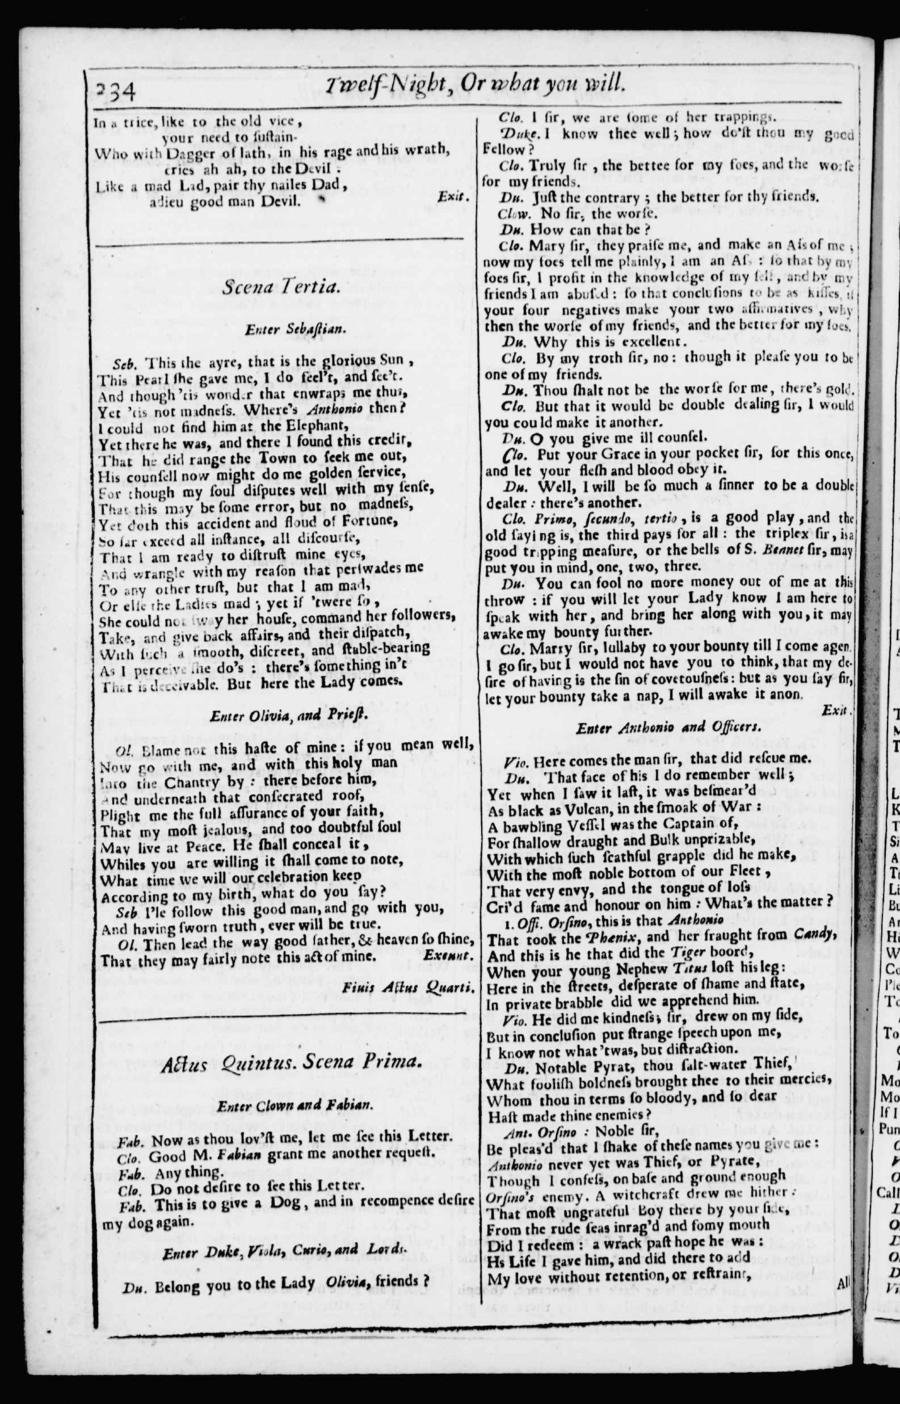 234
Twelf-Night, Or what you will.
In a trice, like to the old vice,
your need to ſuſtain-
Who with Dagger of lath, in his rage and his wrath,
cries ah ah, to the Devil:
Like a mad Lad, pair thy nailes Dad,
adieu good man Devil. Exit.
Scena Tertia.
Enter Sebaſtian.
Seb. This the ayre, that is the glorious Sun,
This Pearl ſhe gave me, I do feel't, and ſee't.
And though 'tis wonder that enwraps me thus,
Yet 'tis not madneſs. Where's Anthonio then?
I could not find him at the Elephant,
Yet there he was, and there I found this credit,
That he did range the Town to ſeek me out,
His counſell now might do me golden ſervice,
For though my ſoul diſputes well with my ſenſe,
That this may be ſome error, but no madneſs,
Yet doth this accident and floud of Fortune,
So far exceed all inſtance, all diſcourſe,
That I am ready to diſtruſt mine eyes,
And wrangle with my reaſon that perſwades me
To any other truſt, but that I am mad,
Or elſe the Ladies mad; yet if 'twere ſo,
She could not ſway her houſe, command her followers,
Take, and give back affairs, and their diſpatch,
With ſuch a ſmooth, diſcreet, and ſtable-bearing
As I perceive ſhe do's: there's ſomething in't
That is deceivable. But here the Lady comes.
Enter Olivia, and Prieſt.
Ol. Blame not this haſte of mine: if you mean well,
Now go with me, and with this holy man
Into the Chantry by: there before him,
And underneath that conſecrated roof,
Plight me the full aſſurance of your faith,
That my moſt jealous, and too doubtful ſoul
May live at Peace. He ſhall conceal it,
Whiles you are willing it ſhall come to note,
What time we will our celebration keep
According to my birth, what do you ſay?
Seb I'le follow this good man, and go with you,
And having ſworn truth, ever will be true.
Ol. Then lead the way good father, & heaven ſo ſhine,
That they may fairly note this act of mine. Exeunt.
Finis Actus Quarti.
Actus Quintus. Scena Prima.
Enter Clown and Fabian.
Fab. Now as thou lov'ſt me, let me ſee this Letter.
Clo. Good M. Fabian grant me another requeſt.
Fab. Any thing.
Clo. Do not deſire to ſee this Letter.
Fab. This is to give a Dog, and in recompence deſire
my dog again.
Enter Duke, Viola, Curio, and Lords.
Du. Belong you to the Lady Olivia, friends?
Clo. I ſir, we are ſome of her trappings.
Duke. I know thee well; how do'ſt thou my good
Fellow?
Clo. Truly ſir, the bettee for my foes, and the worſe
for my friends.
Du. Juſt the contrary; the better for thy friends.
Clow. No ſir, the worſe.
Du. How can that be?
Clo. Mary ſir, they praiſe me, and make an Aſs of me,
now my foes tell me plainly, I am an Aſs: ſo that by my
foes ſir, I profit in the knowledge of my ſelf, and by my
friends I am abuſed: ſo that concluſions to be as kiſſes, if
your four negatives make your two affirmatives, why
then the worſe of my friends, and the better for my foes.
Du. Why this is excellent.
Clo. By my troth ſir, no: though it pleaſe you to be
one of my friends.
Du. Thou ſhalt not be the worſe for me, there's gold.
Clo. But that it would be double dealing ſir, I would
you could make it another.
Du. O you give me ill counſel.
Clo. Put your Grace in your pocket ſir, for this once,
and let your fleſh and blood obey it.
Du. Well, I will be ſo much a ſinner to be a double
dealer: there's another.
Clo. Primo, ſecundo, tertio, is a good play, and the
old ſaying is, the third pays for all: the triplex ſir, is a
good tripping meaſure, or the bells of S. Bennet ſir, may
put you in mind, one, two, three.
Du. You can fool no more money out of me at this
throw: if you will let your Lady know I am here to
ſpeak with her, and bring her along with you, it may
awake my bounty further.
Clo. Marry ſir, lullaby to your bounty till I come agen.
I go ſir, but I would not have you to think, that my de-
ſire of having is the ſin of covetouſneſs: but as you ſay ſir,
let your bounty take a nap, I will awake it anon.
Exit.
Enter Anthonio and Officers.
Vio. Here comes the man ſir, that did reſcue me.
Du. That face of his I do remember well;
Yet when I ſaw it laſt, it was beſmear'd
As black as Vulcan, in the ſmoak of War:
A bawbling Veſſel was the Captain of,
For ſhallow draught and Bulk unprizable,
With which ſuch ſcathful grapple did he make,
With the moſt noble bottom of our Fleet,
That very envy, and the tongue of loſs
Cri'd fame and honour on him: What's the matter?
1. Offi. Orſino, this is that Anthonio
That took the Phœnix, and her fraught from Candy,
And this is he that did the Tiger boord,
When your young Nephew Titus loſt his leg:
Here in the ſtreets, deſperate of ſhame and ſtate,
In private brabble did we apprehend him.
Vio. He did me kindneſs; ſir, drew on my ſide,
But in concluſion put ſtrange ſpeech upon me,
I know not what 'twas, but diſtraction.
Du. Notable Pyrat, thou ſalt-water Thief,
What fooliſh boldneſs brought thee to their mercies,
Whom thou in terms ſo bloody, and ſo dear
Haſt made thine enemies?
Ant. Orſino: Noble ſir,
Be pleas'd that I ſhake of theſe names you give me:
Anthonio never yet was Thief, or Pyrate,
Though I confeſs, on baſe and ground enough
Orſino's enemy. A witchcraft drew me hither:
That moſt ungrateful Boy there by your ſide,
From the rude ſeas inrag'd and fomy mouth
Did I redeem: a wrack paſt hope he was:
Hs Life I gave him, and did there to add
My love without retention, or reſtraint,
All